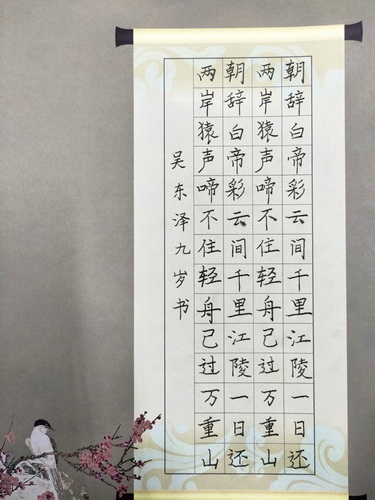 朝辞白帝彩云间千里江陵一日还
两岸猿声啼不住轻舟已过万重山
朝辞白帝彩云间千里江陵一日还
两岸猿声啼不住轻舟已过万重山
吴东泽九岁书